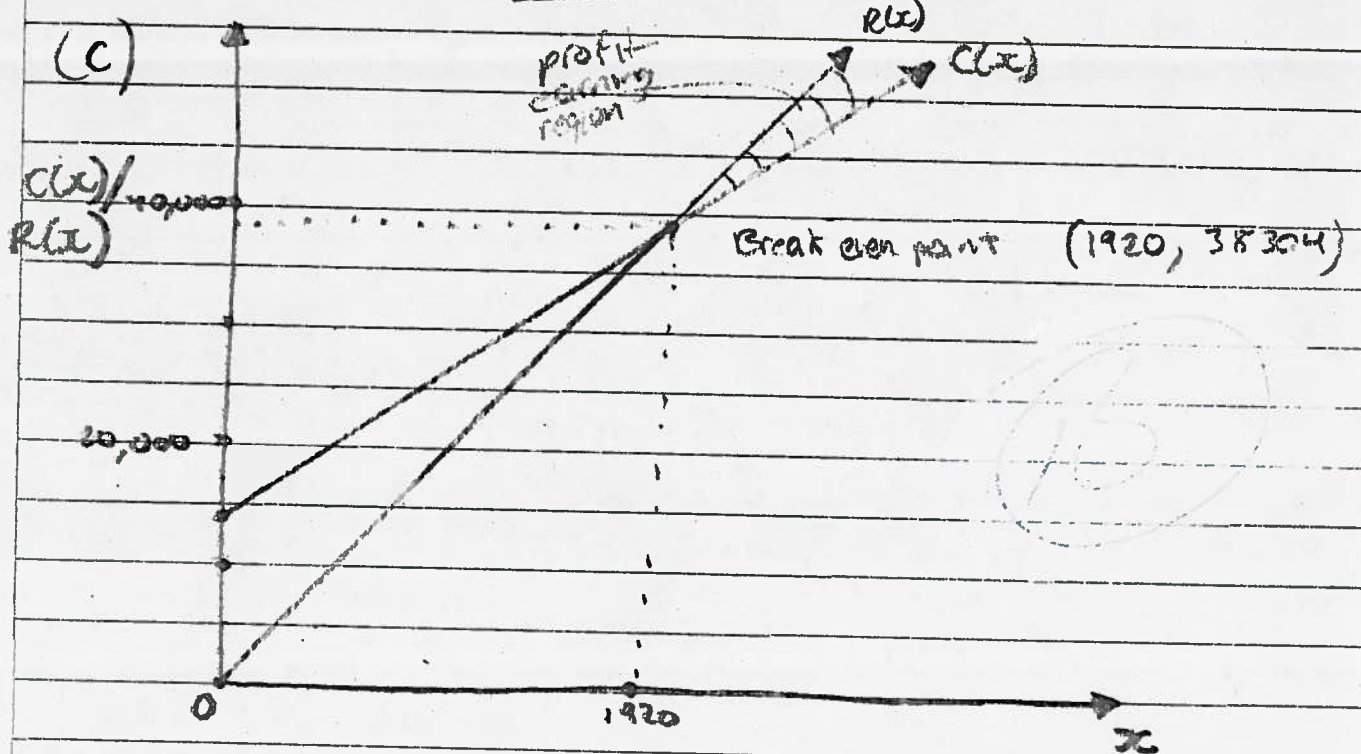 (C)
R(x)
C(x)
profit
earning
region
C(x)/
R(x)
40,000
Break even point (1920, 38304)
20,000
0
1920
x